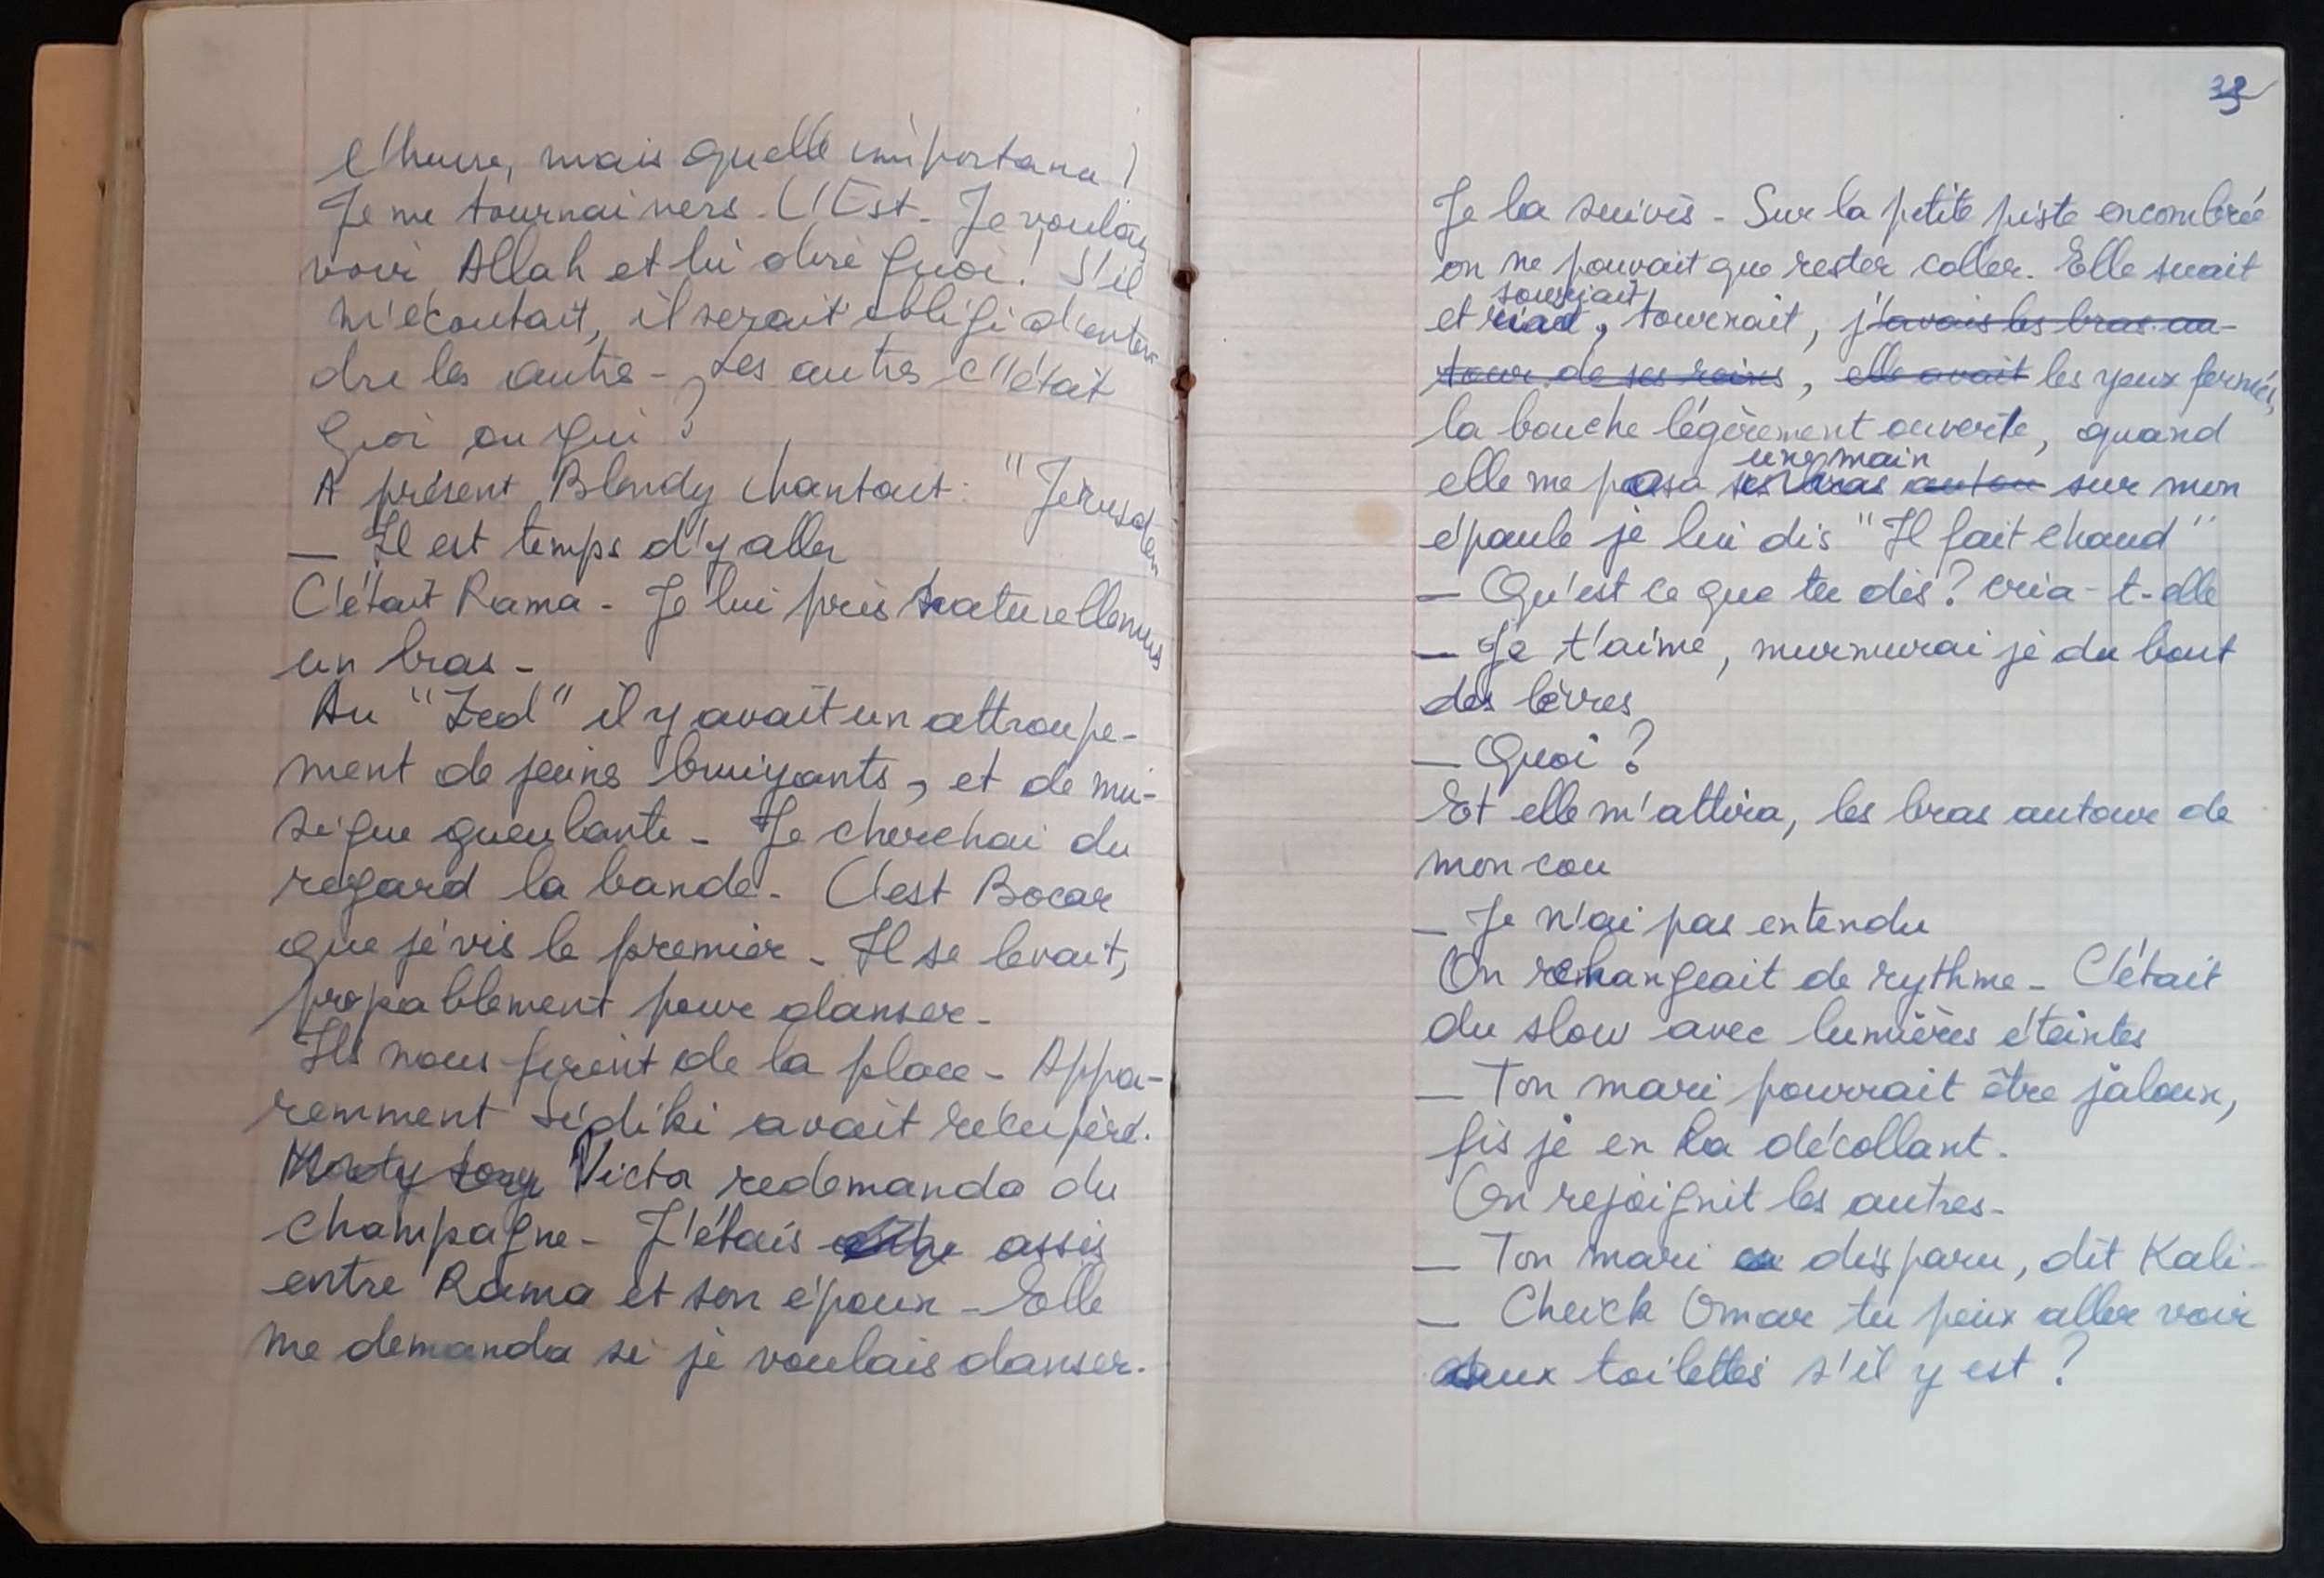 l'heure, mais quelle importance !
Je me tournai vers l'Est. Je voulais
voir Allah et lui dire quoi ! S'il
m'écoutait, il serait obligé d'enten
dre les autres - Les autres c'était
quoi ou qui ?
A présent Blondy chantait : "Jérusalem
— Il est temps d'y aller
C'était Rama - Je lui pris naturellement
un bras -
Au "Zed" il y avait un attroupe-
ment de jeunes bruyants, et de mu-
sique gueulante - Je cherchai du
regard la bande. C'est Bocar
que je vis le premier - Il se levait,
propablement pour danser -
Ils nous firent de la place - Appa-
remment Sidiki avait récupéré.
Victor redemanda du
champagne - J'étais assis
entre Rama et son époux - Elle
me demanda si je voulais danser.
39
Je la suivis - Sur la petite piste encombrée
on ne pouvait que rester coller. Elle suait
souriait
et riait, tournait, j'avais les bras au-
tour de ses reins, elle avait les yeux fermés,
la bouche légèrement ouverte, quand
une main
elle me posa ses bras autou sur mon
épaule je lui dis "Il fait chaud"
— Qu'est ce que tu dis ? cria-t-elle
— Je t'aime, murmurai je du bout
des lèvres
— Quoi ?
Et elle m'attira, les bras autour de
mon cou
— Je n'ai pas entendu
On changeait de rythme - C'était
du slow avec lumières éteintes
— Ton mari pourrait être jaloux,
fis je en la décollant.
On rejoignit les autres -
— Ton mari a disparu, dit Kali -
— Cheick Omar tu peux aller voir
aux toilettes s'il y est ?